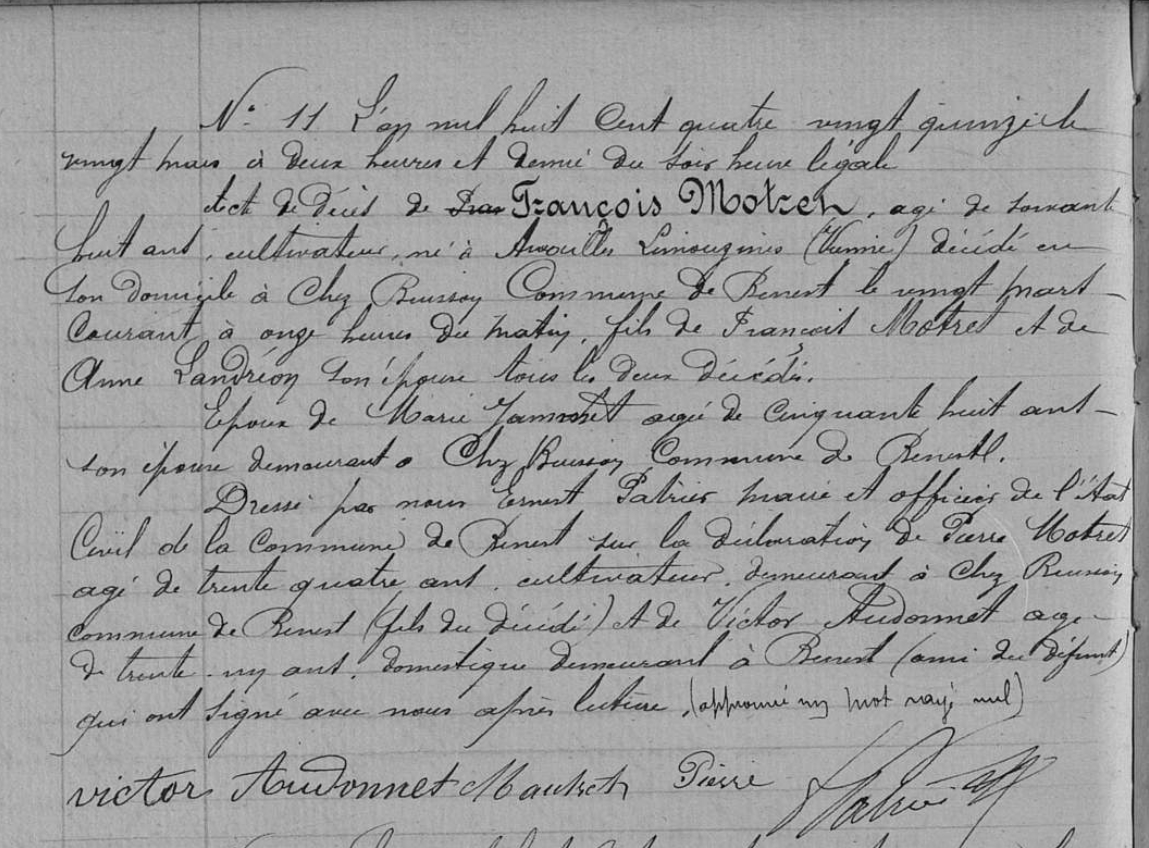 N° 11 L'an mil huit cent quatre vingt quinze le
vingt mars à deux heures et demie du soir heure légale
Acte de décès de Fran François Motreh, agé de soixante
huit ans, cultivateur, né à Limouzines (Vienne) décédé en
son domicile à Chez Buisson Commune de Benest le vingt mars
courant à onze heures du matin, fils de François Motret et de
Anne Landréon son épouse tous les deux décédés.
Epoux de Marie agée de cinquante huit ans
son épouse demeurant à Chez Buisson Commune de Benest.
Dressé par nous Ernest Patrier maire et officier de l'état
Civil de la Commune de Benest sur la déclaration de Pierre Motret
agé de trente quatre ans, cultivateur, demeurant à Chez Buisson
commune de Benest (fils du décédé) et de Victor Audonnet agé
de trente un ans, domestique demeurant à Benest (ami du défunt)
qui ont signé avec nous après lecture, (approuvé un mot rayé nul)
victor Audonnet Mautreh Pierre Patrier